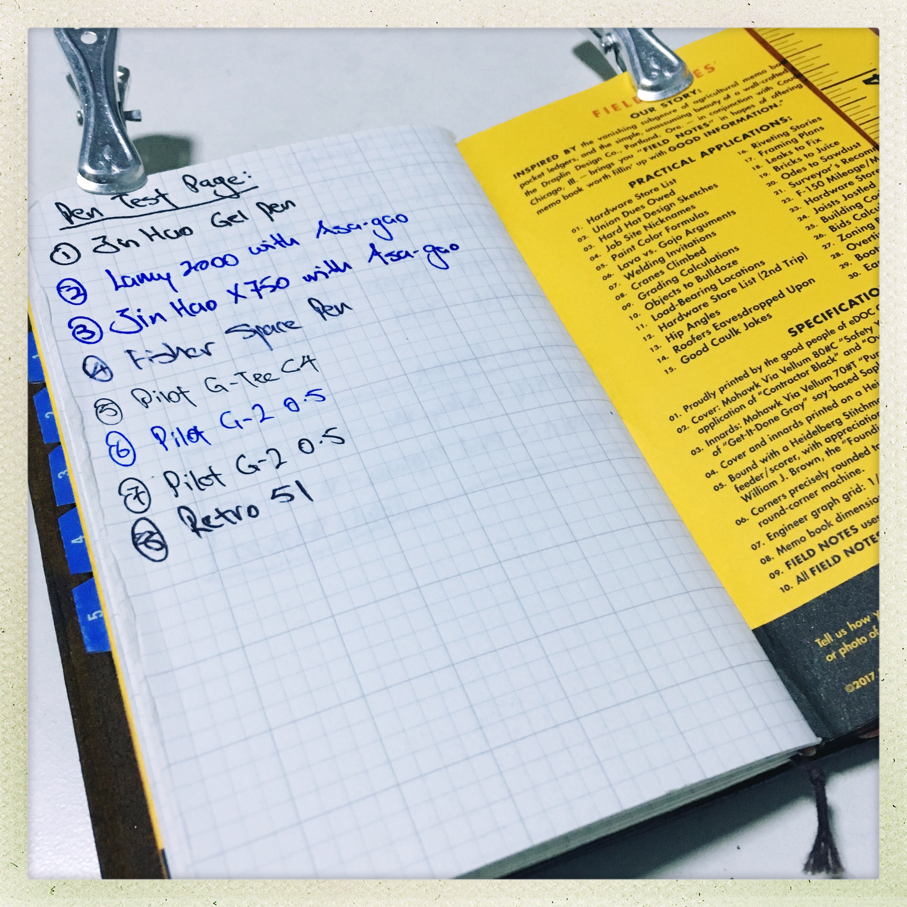 Pen Test Page:
1 Jin Hao Gel Pen
2 Lamy 2000 with Asa-gao
3 Jin Hao X750 with Asa-gao
4 Fisher Space Pen
5 Pilot G-Tec C4
6 Pilot G-2 0.5
7 Pilot G-2 0.5
8 Retro 51
1
2
3
4
5
FIELD NOTES
OUR STORY:
INSPIRED BY the vanishing subgenre of agricultural memo
pocket ledgers, and the simple, unassuming beauty of a well-crafted
the Draplin Design Co., Portland, Ore. — in conjunction with
Chicago, Ill. — brings you "FIELD NOTES" in hopes of offering
memo book worth fillin' up with GOOD INFORMATION."
PRACTICAL APPLICATIONS:
01. Hardware Store List
02. Union Dues Owed
03. Hard Hat Design Sketches
04. Job Site Nicknames
05. Paint Color Formulas
06. Lava vs. Gojo Arguments
07. Welding Invitations
08. Cranes Climbed
09. Grading Calculations
10. Objects to Bulldoze
11. Load-Bearing Locations
12. Hardware Store List (2nd Trip)
13. Hip Angles
14. Roofers Eavesdropped Upon
15. Good Caulk Jokes
16. Riveting Stories
17. Framing Plans
18. Leaks to Fix
19. Bricks to Juice
20. Odes to Sawdust
21. Surveyor's Recon
22. F-150 Mileage/M
23. Hardware Store
24. Joists Jollied
25. Building Co
26. Bids Calcu
27. Zoning
28. Overti
29. Boot
30. Ea
SPECIFICATIO
01. Proudly printed by the good people of eDOC
02. Cover: Mohawk Via Vellum 80#C "Safety
application of "Contractor Black" and "Ov
03. Innards: Mohawk Via Vellum 70#T "Pur
of "Get-It-Done Gray" soy-based Soph
04. Cover and innards printed on a Hei
05. Bound with a Heidelberg Stitchm
feeder/scorer, with appreciation
William J. Brown, the "Foundi
06. Corners precisely rounded to
round-corner machine.
07. Engineer graph grid: 1/
08. Memo book dimensio
09. FIELD NOTES uses
10. All FIELD NOTES
Tell us how y
or photo of
©2017